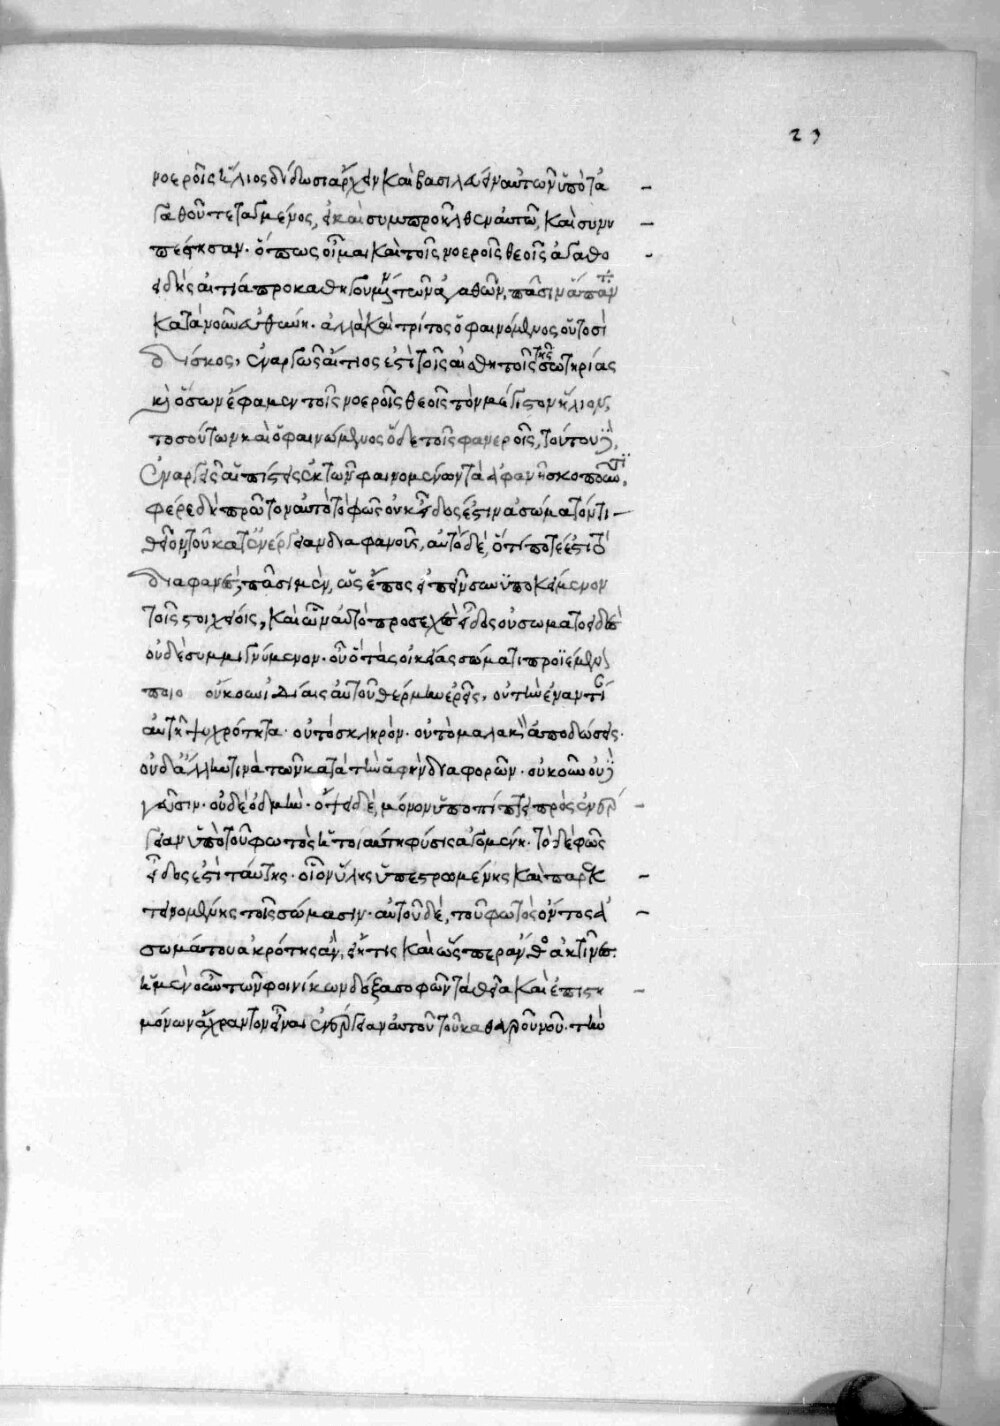 23
νοεροῖς ἥλιος δίδωσιν ἄρχειν καὶ βασιλεύειν αὐτῶν ὑπὸ τἀ
γαθοῦ τεταγμένος, εἰ καὶ συμπροῆλθεν αὐτῷ, καὶ συνυ
πέστησαν. ὅπως οἶμαι καὶ τοῖς νοεροῖς θεοῖς ἀγαθο
ειδὴς αἰτία προκαθηγουμένη τῶν ἀγαθῶν, πᾶσιν ἅπαντα
κατὰ νοῦν εὐθύνῃ. ἀλλὰ καὶ τρίτος ὁ φαινόμενος οὑτοσὶ
δίσκος, ἐναργῶς αἴτιός ἐστι τοῖς αἰσθητοῖς τῆς σωτηρίας
καὶ ὅσων ἔφαμεν τοῖς νοεροῖς θεοῖς τὸν μέγιστον ἥλιον,
τοσούτων καὶ ὁ φαινώμενος ὅδε τοῖς φανεροῖς, τούτου δὲ,
ἐναργεῖς αἱ πίστεις ἐκ τῶν φαινομένων τὰ ἀφανῆ σκοποῦντι,
φέρε δὴ πρῶτον αὐτὸ τὸ φῶς οὐκ εἶδός ἐστιν ἀσώματόν τι
θεῖον τοῦ κατ' ἐνέργειαν διαφανοῦς, αὐτὸ δὲ, ὅτι ποτέ ἐστι τὸ
διαφανὲς, πᾶσι μὲν, ὡς ἔπος εἰπεῖν συνϋποκείμενον
τοῖς στοιχείοις, καὶ ὂν αὐτὸ προσεχὲς εἶδος οὐ σωματοειδὲς
οὐδὲ συμμιγνύμενον. οὐδὲ τὰς οἰκείας σώματι προϊέμενον
ποιο οὔκουν ἰδίαις αὐτοῦ θέρμην ἐρεῖς, οὐ τὴν ἐναντί
αὐτῇ ψυχρότητα. οὐ τὸ σκληρόν. οὐ τὸ μαλακὸν ἀποδώσεις.
οὐδ' ἄλλην τινὰ τῶν κατὰ τὴν ἁφὴν διαφορῶν. οὔκουν οὐδὲ
γεῦσιν. οὐδὲ ὀδμὴν. ὄψει δὲ, μόνον ὑποπίπτει πρὸς ἐνέρ
γειαν ὑπὸ τοῦ φωτὸς ἡ τοιαύτη φύσις ἀγομένη. τὸ δὲ φῶς
εἶδός ἐστι ταύτης. οἷον ὕλης ὑπεστρωμένης καὶ παρεκ
τεινομένης τοῖς σώμασιν. αὐτοῦ δὲ, τοῦ φωτὸς ὄντος ἀ
σωμάτου ἀκρότης ἂν, εἴη τις καὶ ὥσπερ ἄνθος ἀκτῖνες.
ἡ μὲν οὖν τῶν φοινίκων δόξα σοφῶν τὰ θεῖα καὶ ἐπιστη
μόνων ἄχραντον εἶναι ἐνέργειαν αὐτοῦ τοῦ καθαροῦ νοῦ. τὴν